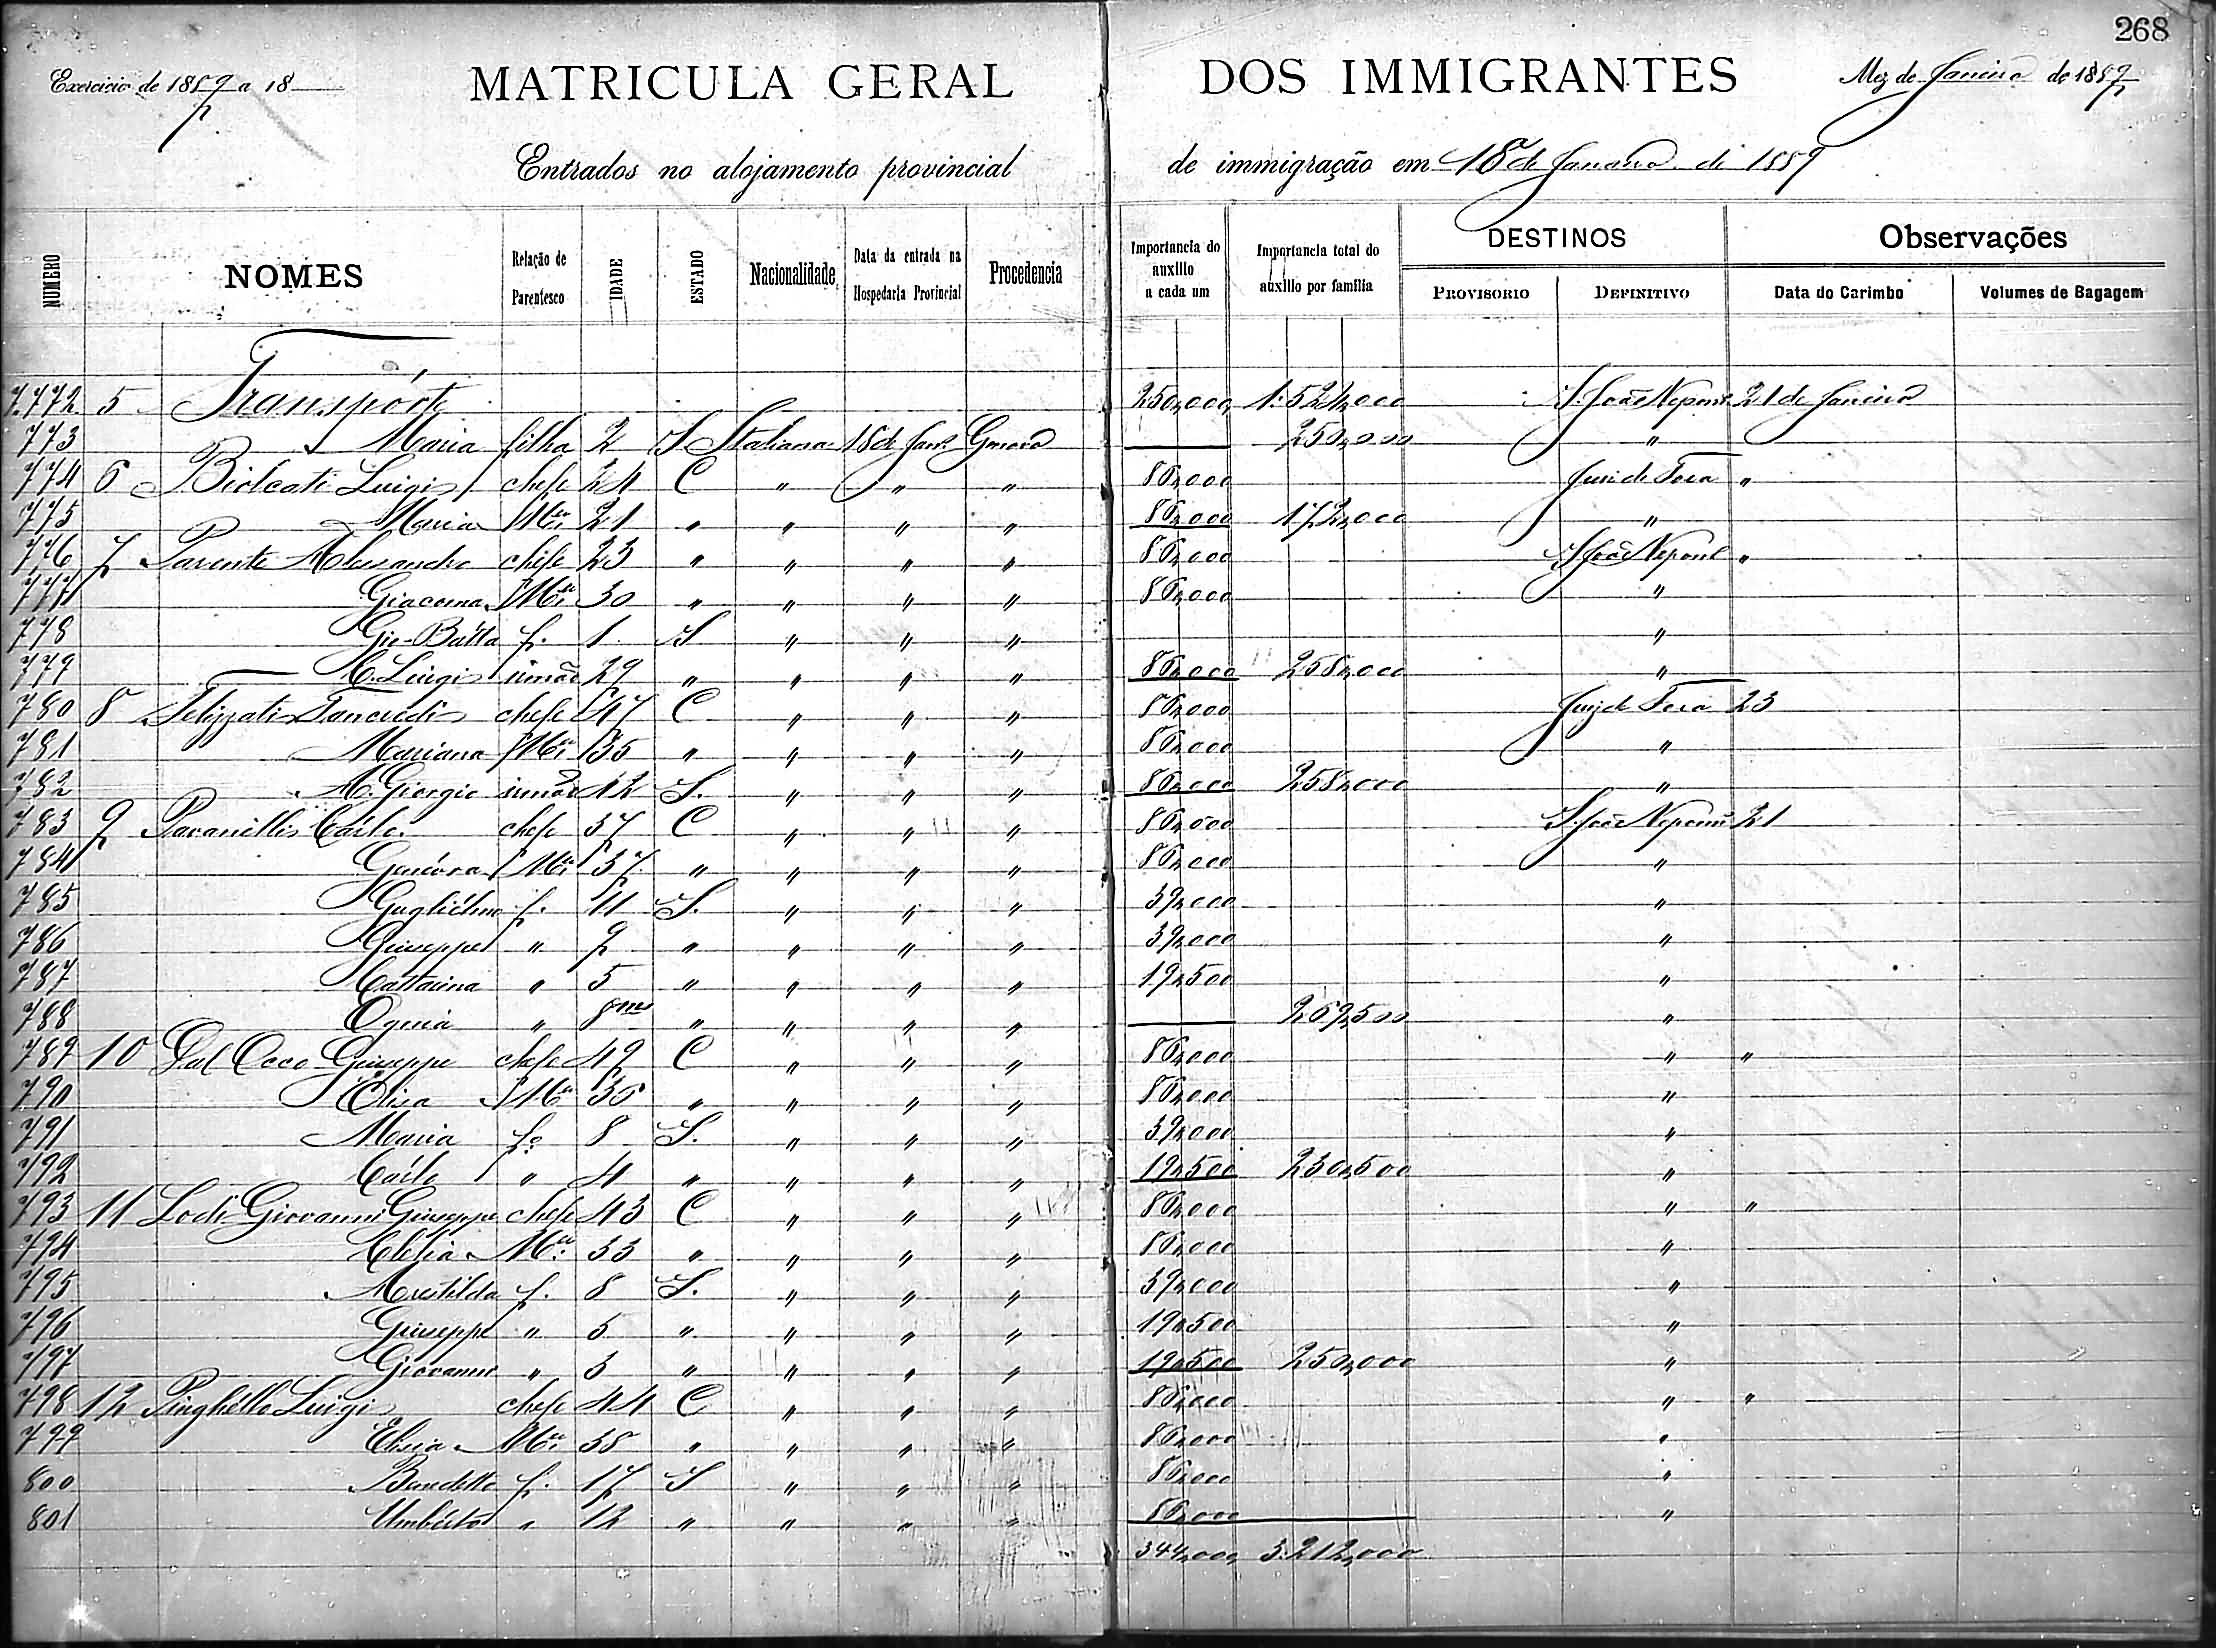 268
Exercicio de 1889 a 18
MATRICULA GERAL DOS IMMIGRANTES
Mez de Janeiro de 1889
Entrados no alojamento provincial de immigração em 18 de Janeiro de 1889
NUMERO NOMES Relação de Parentesco IDADE ESTADO Nacionalidade Data da entrada na Hospedaria Provincial Procedencia Importancia do auxilio a cada um Importancia total do auxilio por familia DESTINOS PROVISORIO DEFINITIVO Observações Data do Carimbo Volumes de Bagagem
7.772 5 Transporte 250,000 1:521,000 S. João Nepom. 21 de Janeiro
773 Maria filha 2 S Italiana 18 de Janr. Genova 250,000 "
774 6 Biolcati Luigi chefe 24 C " " " 86,000 Juiz de Fora "
775 Maria Mer. 21 " " " " 86,000 172,000 "
776 7 Parente Alessandro chefe 23 " " " " 86,000 S. João Nepom. "
777 Giacoma Mer. 30 " " " " 86,000 "
778 Gio-Batta f. 1 S " " " "
779 C. Luigi irmão 29 " " " " 86,000 258,000 "
780 8 Tancredi chefe 47 C " " " 86,000 Juiz de Fora 23
781 Mariana Mer. 35 " " " " 86,000 "
782 M. Giorgio irmão 42 S. " " " 86,000 258,000 "
783 9 Pavanelli Carlo chefe 37 C " " " 86,000 S. João Nepom. 21
784 Genéva Mer. 37 " " " " 86,000 "
785 Guglielmo f. 11 S. " " " 39,000 "
786 Giuseppe " 9 " " " " 39,000 "
787 Cattarina " 5 " " " " 19,500 "
788 " 8 mes " " " " 269,500 "
789 10 Dal Occo Giuseppe chefe 49 C " " " 86,000 " "
790 Elisa Mer. 36 " " " " 86,000 "
791 Maria fa. 8 S. " " " 39,000 "
792 Carlo " 4 " " " " 19,500 230,500 "
793 11 Lodi Giovanni Giuseppe chefe 43 C " " " 86,000 " "
794 Clelia Mer. 33 " " " " 86,000 "
795 Mestilda f. 8 S. " " " 39,000 "
796 Giuseppe " 5 " " " " 19,500 "
797 Giovanni " 3 " " " " 19,500 250,000 "
798 12 Pinghello Luigi chefe 44 C " " " 86,000 " "
799 Elisia Mer. 38 " " " " 86,000 "
800 Benedetto f. 17 S " " " 86,000 "
801 Umberto " 12 " " " " 86,000 "
344,000 3:212,000